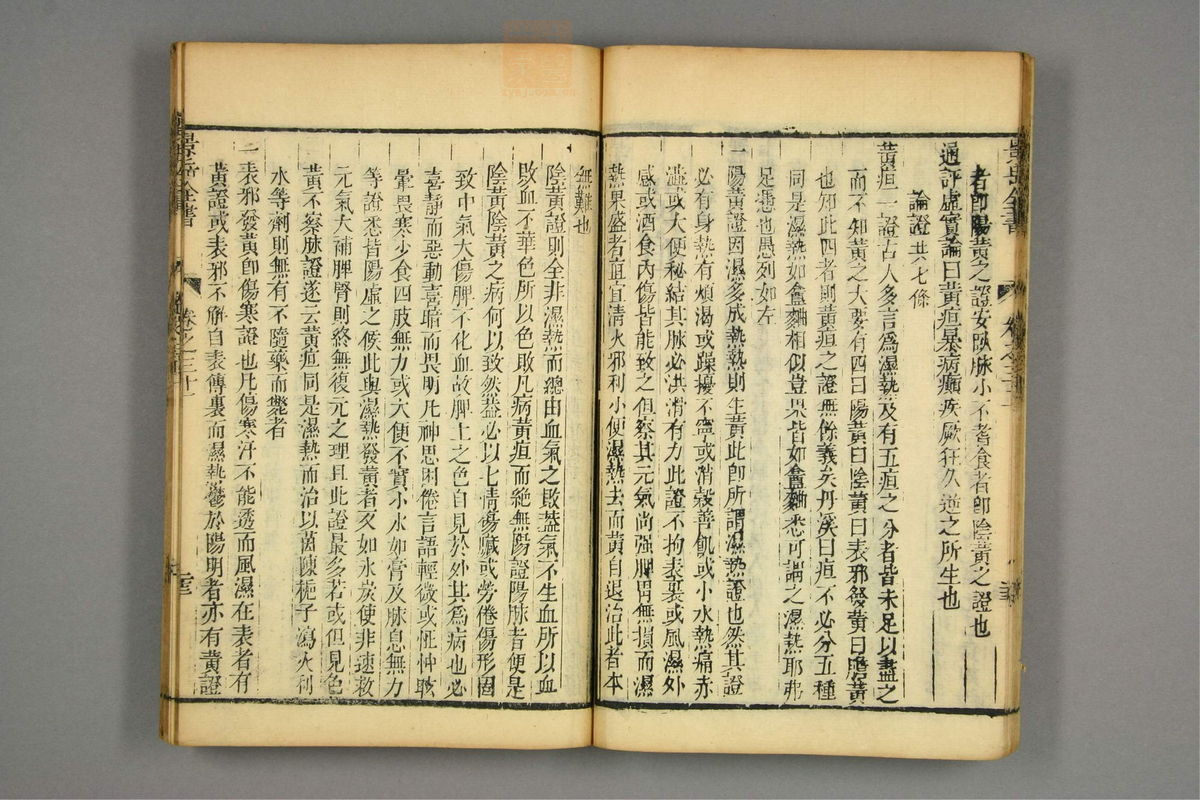 景岳全書
卷之三十一
者即陽黃之證安臥脉小不耆食者即陰黃之證也
通評虛實論曰黃疸暴病癲疾厥狂久逆之所生也
論證 共七條
黃疸一證古人多言爲濕熱及有五疸之分者皆未足以盡之
而不知黃之大要有四曰陽黃曰陰黃曰表邪發黃曰膽黃
也知此四者則黃疸之證無餘義矣丹溪曰疸不必分五種
同是濕熱如盦麯相似豈果皆如盦麯悉可謂之濕熱耶弗
足憑也愚列如左
一陽黃證因濕多成熱熱則生黃此即所謂濕熱證也然其證
必有身熱有煩渴或躁擾不寧或消穀善飢或小水熱痛赤
澁或大便秘結其脉必洪滑有力此證不拘表裏或風濕外
感或酒食內傷皆能致之但察其元氣尚强脾胃無損而濕
熱果盛者直宜清火邪利小便濕熱去而黃自退治此者本
無難也
一陰黃證則全非濕熱而總由血氣之敗蓋氣不生血所以血
敗血不華色所以色敗凡病黃疸而絶無陽證陽脉者便是
陰黃陰黃之病何以致然蓋必以七情傷臟或勞倦傷形因
致中氣大傷脾不化血故脾土之色自見於外其爲病也必
喜靜而惡動喜暗而畏明凡神思困倦言語輕微或怔忡眩
暈畏寒少食四肢無力或大便不實小水如膏及脉息無力
等證悉皆陽虛之候此與濕熱發黃者反如氷炭使非速救
元氣大補脾腎則終無復元之理且此證最多若或但見色
黃不察脉證遂云黃疸同是濕熱而治以茵陳梔子瀉火利
水等劑則無有不隨藥而斃者
一表邪發黃即傷寒證也凡傷寒汗不能透而風濕在表者有
黃證或表邪不解自表傳裏而濕熱鬱於陽明者亦有黃證
景岳全書
卷之三十一